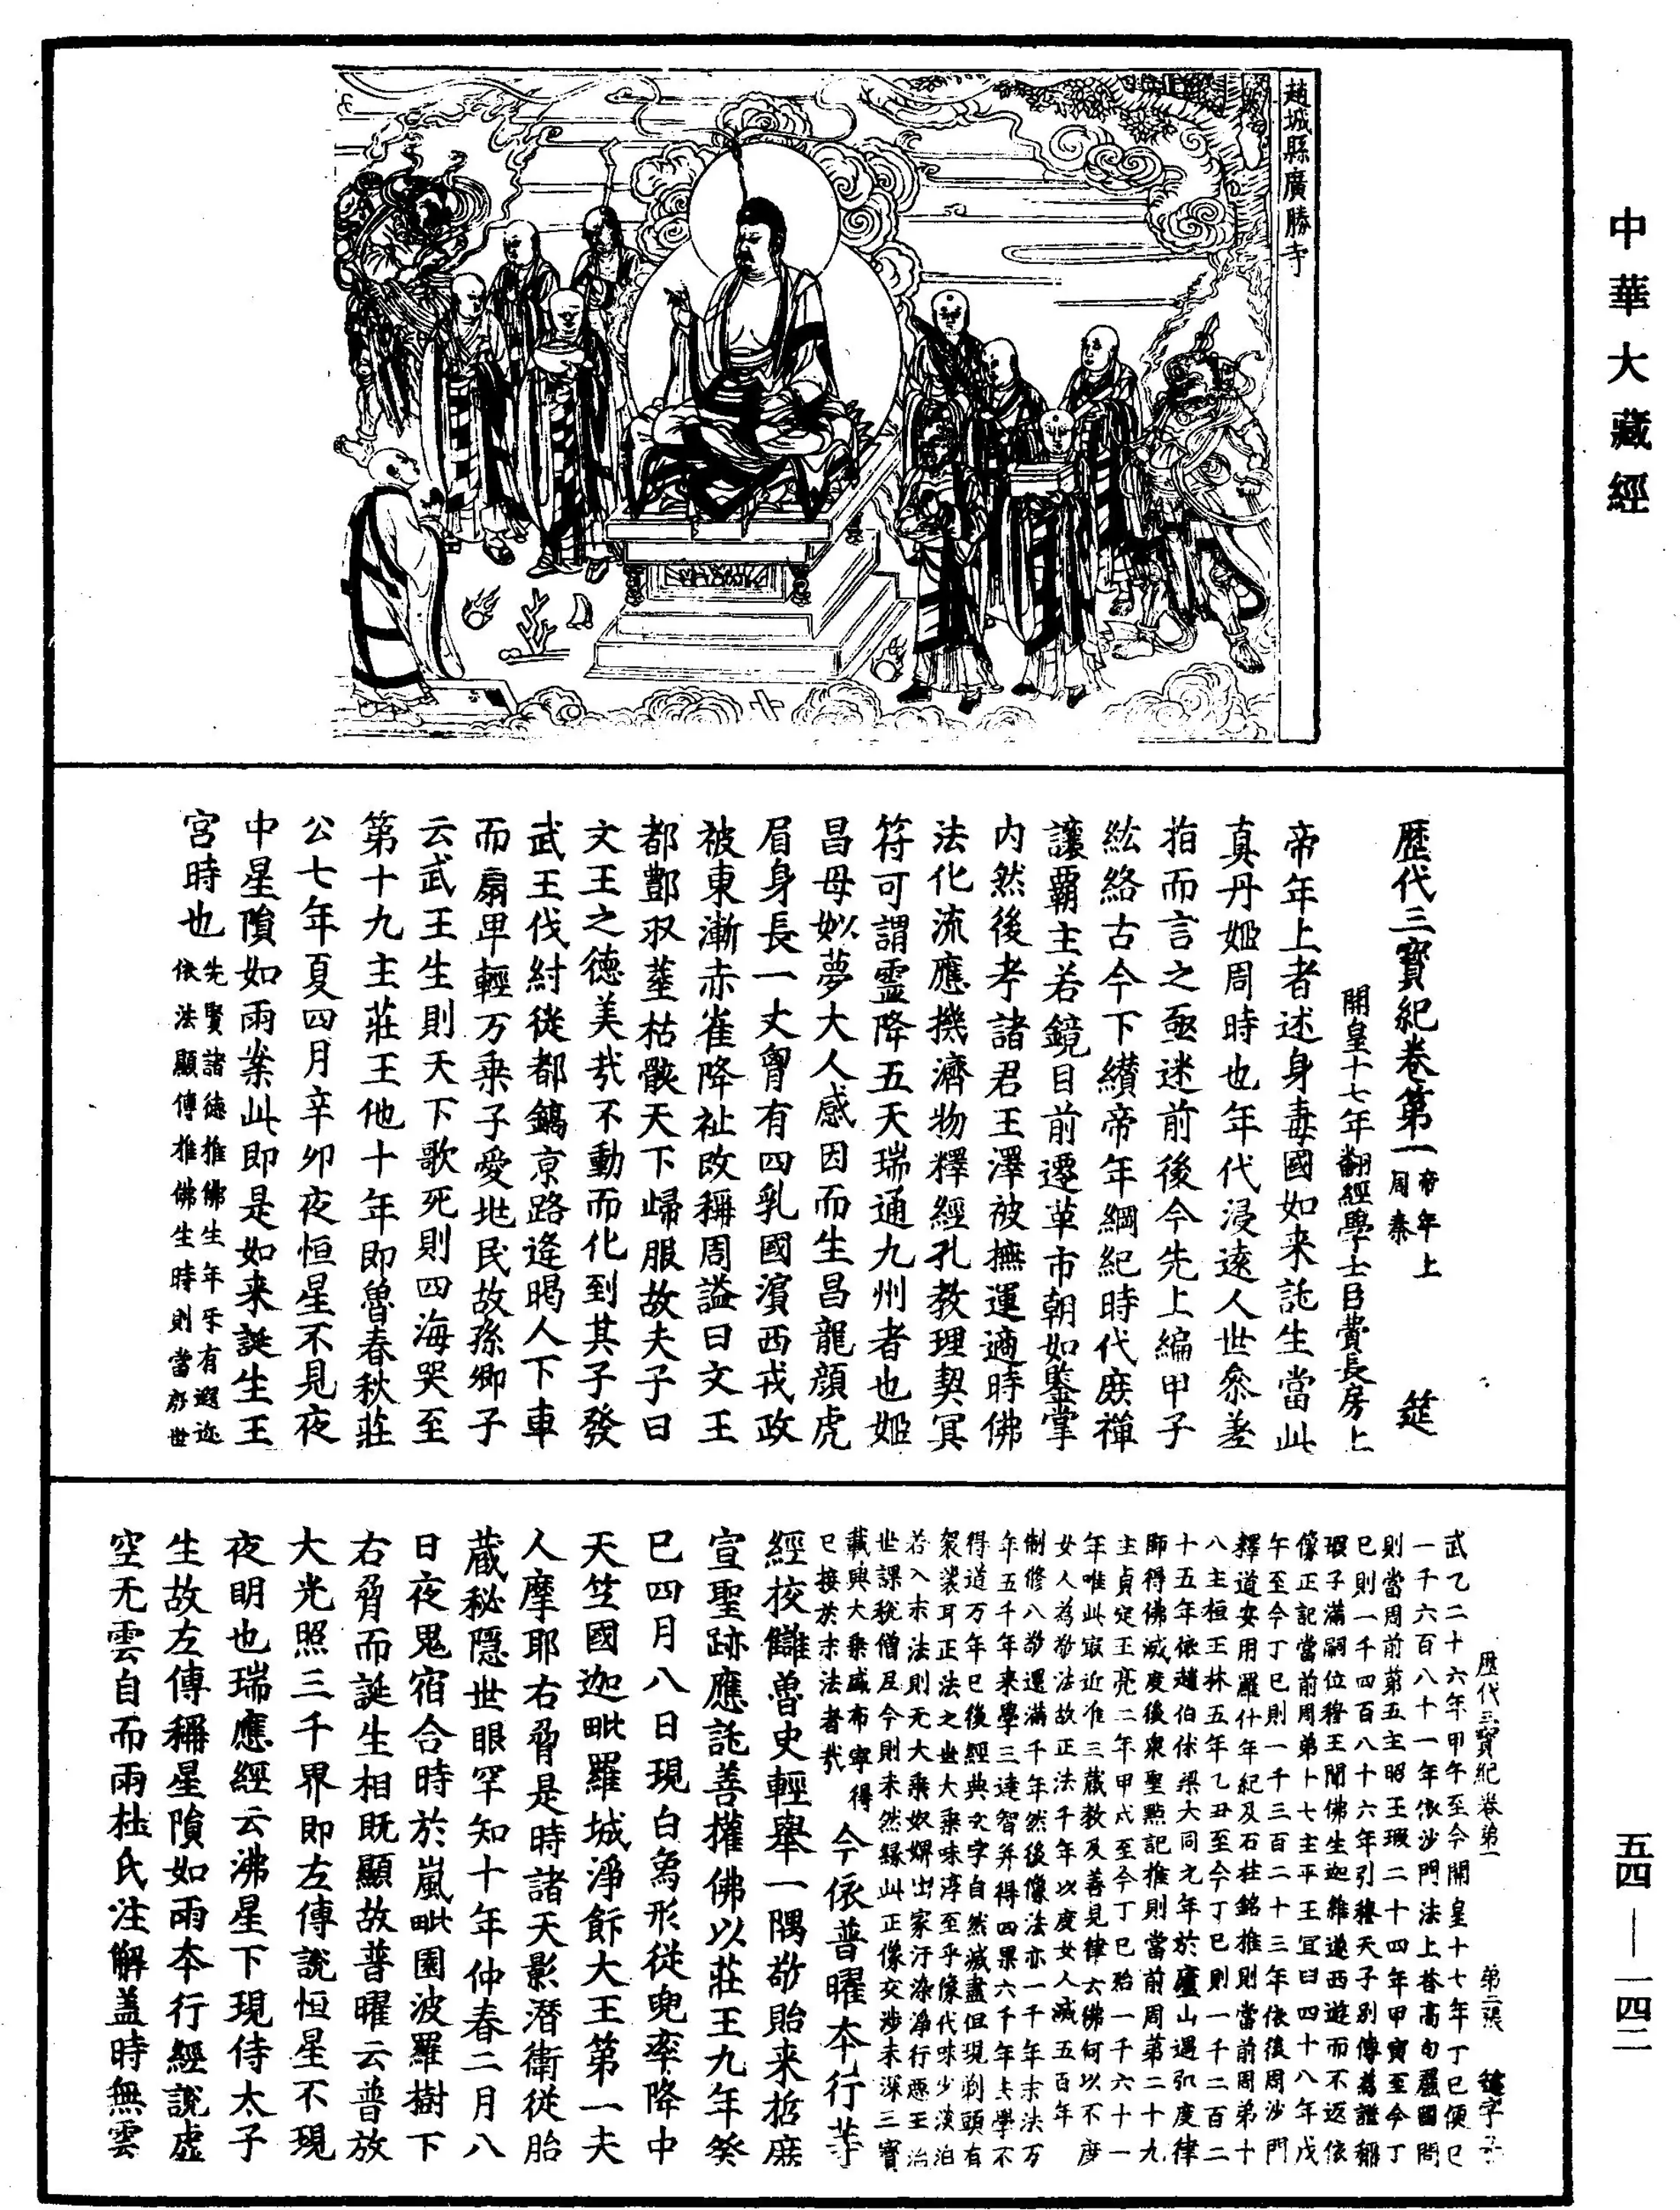 中華大藏經
趙城縣廣勝寺
歷代三寶紀卷第一 帝年上 周秦 筵
開皇十七年翻經學士臣費長房上
帝年上者述身毒國如来託生當此
真丹姬周時也年代浸遠人世叅差
指而言之亟迷前後今先上編甲子
紘絡古今下纘帝年綱紀時代庻禪
讓覇主若鏡目前遷革市朝如鑒掌
内然後考諸君王澤被撫運適時佛
法化流應機濟物釋經孔教理契冥
符可謂靈降五天瑞通九州者也姬
昌母姒夢大人感因而生昌龍顔虎
眉身長一丈胷有四乳國濵西戎政
被東漸赤雀降祉改稱周謚曰文王
都酆収葬枯骸天下歸服故夫子曰
文王之德美㢤不動而化到其子發
武王伐紂從都鎬京路逢暍人下車
而扇卑輕万乗子愛地民故孫卿子
云武王生則天下歌死則四海哭至
第十九主莊王他十年即魯春秋莊
公七年夏四月辛卯夜恒星不見夜
中星隕如雨案此即是如来誕生王
宮時也 先賢諸德推佛生年互有遐迩
依法顯傳推佛生時則當殷世
歷代三寶紀卷第一 第二張 筵字号
武乙二十六年甲午至今開皇十七年丁巳便已
一千六百八十一年依沙門法上荅高句麗國問
則當周前第五主昭王瑕二十四年甲寅至今丁
巳則一千四百八十六年引穆天子别傳為證稱
瑕子滿嗣位穆王聞佛生迦維遂西遊而不返依
像正記當前周第十七主平王冝臼四十八年戊
午至今丁巳則一千三百二十三年依後周沙門
釋道安用羅什年紀及石柱銘推則當前周弟十
八主桓王林五年乙丑至今丁巳則一千二百二
十五年依趙伯休梁大同元年於廬山遇弘度律
師得佛滅度後衆聖點記推則當前周第二十九
主貞定王亮二年甲戌至今丁巳殆一千六十一
年唯此㝡近准三藏教及善見律云佛何以不度
女人為敬法故正法千年以度女人減五百年
制修八敬還滿千年然後像法亦一千年末法万
年五千年来學三達智并得四果六千年去學不
得道万年已後經典文字自然滅盡但現剃頭有
袈裟耳正法之世大乗味淳至乎像代味少淡泊
若入末法則无大乗奴婢出家汙染浄行惡王治
世課稅僧尼今則未然縁此正像交涉未深三寶
載興大乗盛布寧得
已接於末法者㢤 今依普曜夲行䓁
經校讎魯史輕舉一隅敬貽来哲庻
宣聖跡應託善權佛以莊王九年癸
巳四月八日現白象形從兜率降中
天竺國迦毗羅城淨飰大王第一夫
人摩耶右脅是時諸天影潛衛從胎
蔵秘隱世眼罕知十年仲春二月八
日夜鬼宿合時於嵐毗園波羅樹下
右脅而誕生相既顯故普曜云普放
大光照三千界即左傳說恒星不現
夜明也瑞應經云沸星下現侍太子
生故左傳稱星隕如雨夲行經說虚
空无雲自而雨杜氏注解盖時無雲
五四—一四二